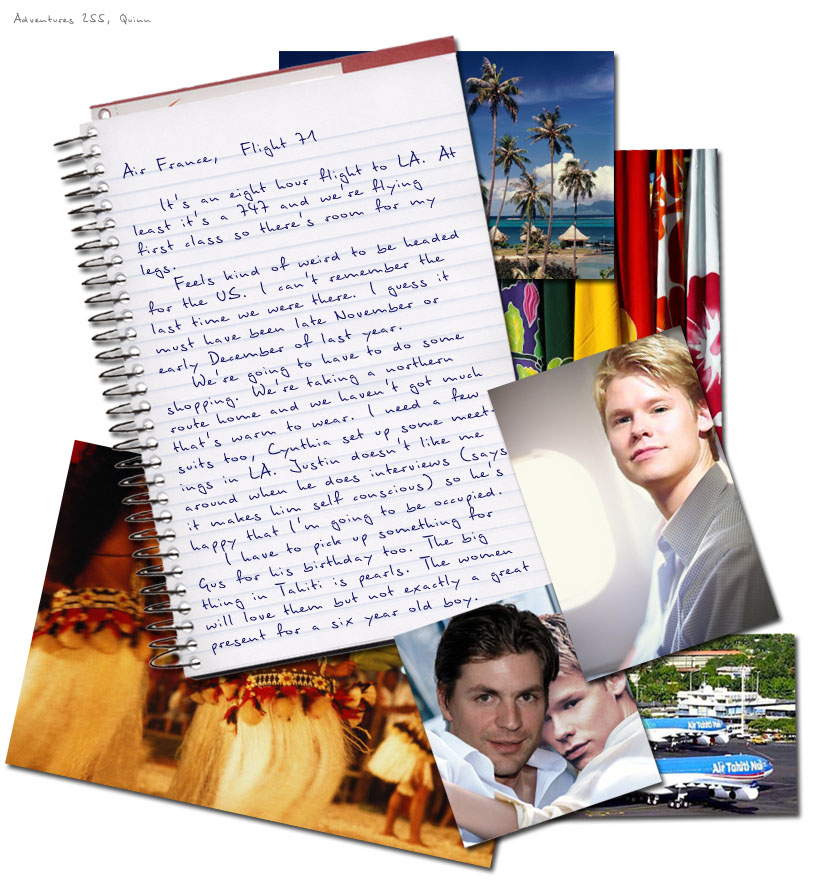 Adventures 255, Quinn
Air France, Flight 71
It's an eight hour flight to LA. At
least it's a 747 and we're flying
first class so there's room for my
legs.
Feels kind of weird to be headed
for the US. I can't remember the
last time we were there. I guess it
must have been late November or
early December of last year.
We're going to have to do some
shopping. We're taking a northern
route home and we haven't got much
that's warm to wear. I need a few
suits too, Cynthia set up some meet-
ings in LA. Justin doesn't like me
around when he does interviews (says
it makes him self conscious) so he's
happy that I'm going to be occupied.
I have to pick up something for
Gus for his birthday too. The big
thing in Tahiti is pearls. The women
will love them but not exactly a great
present for a six year old boy.
Air Tahiti Nui
Air Tahiti Nui